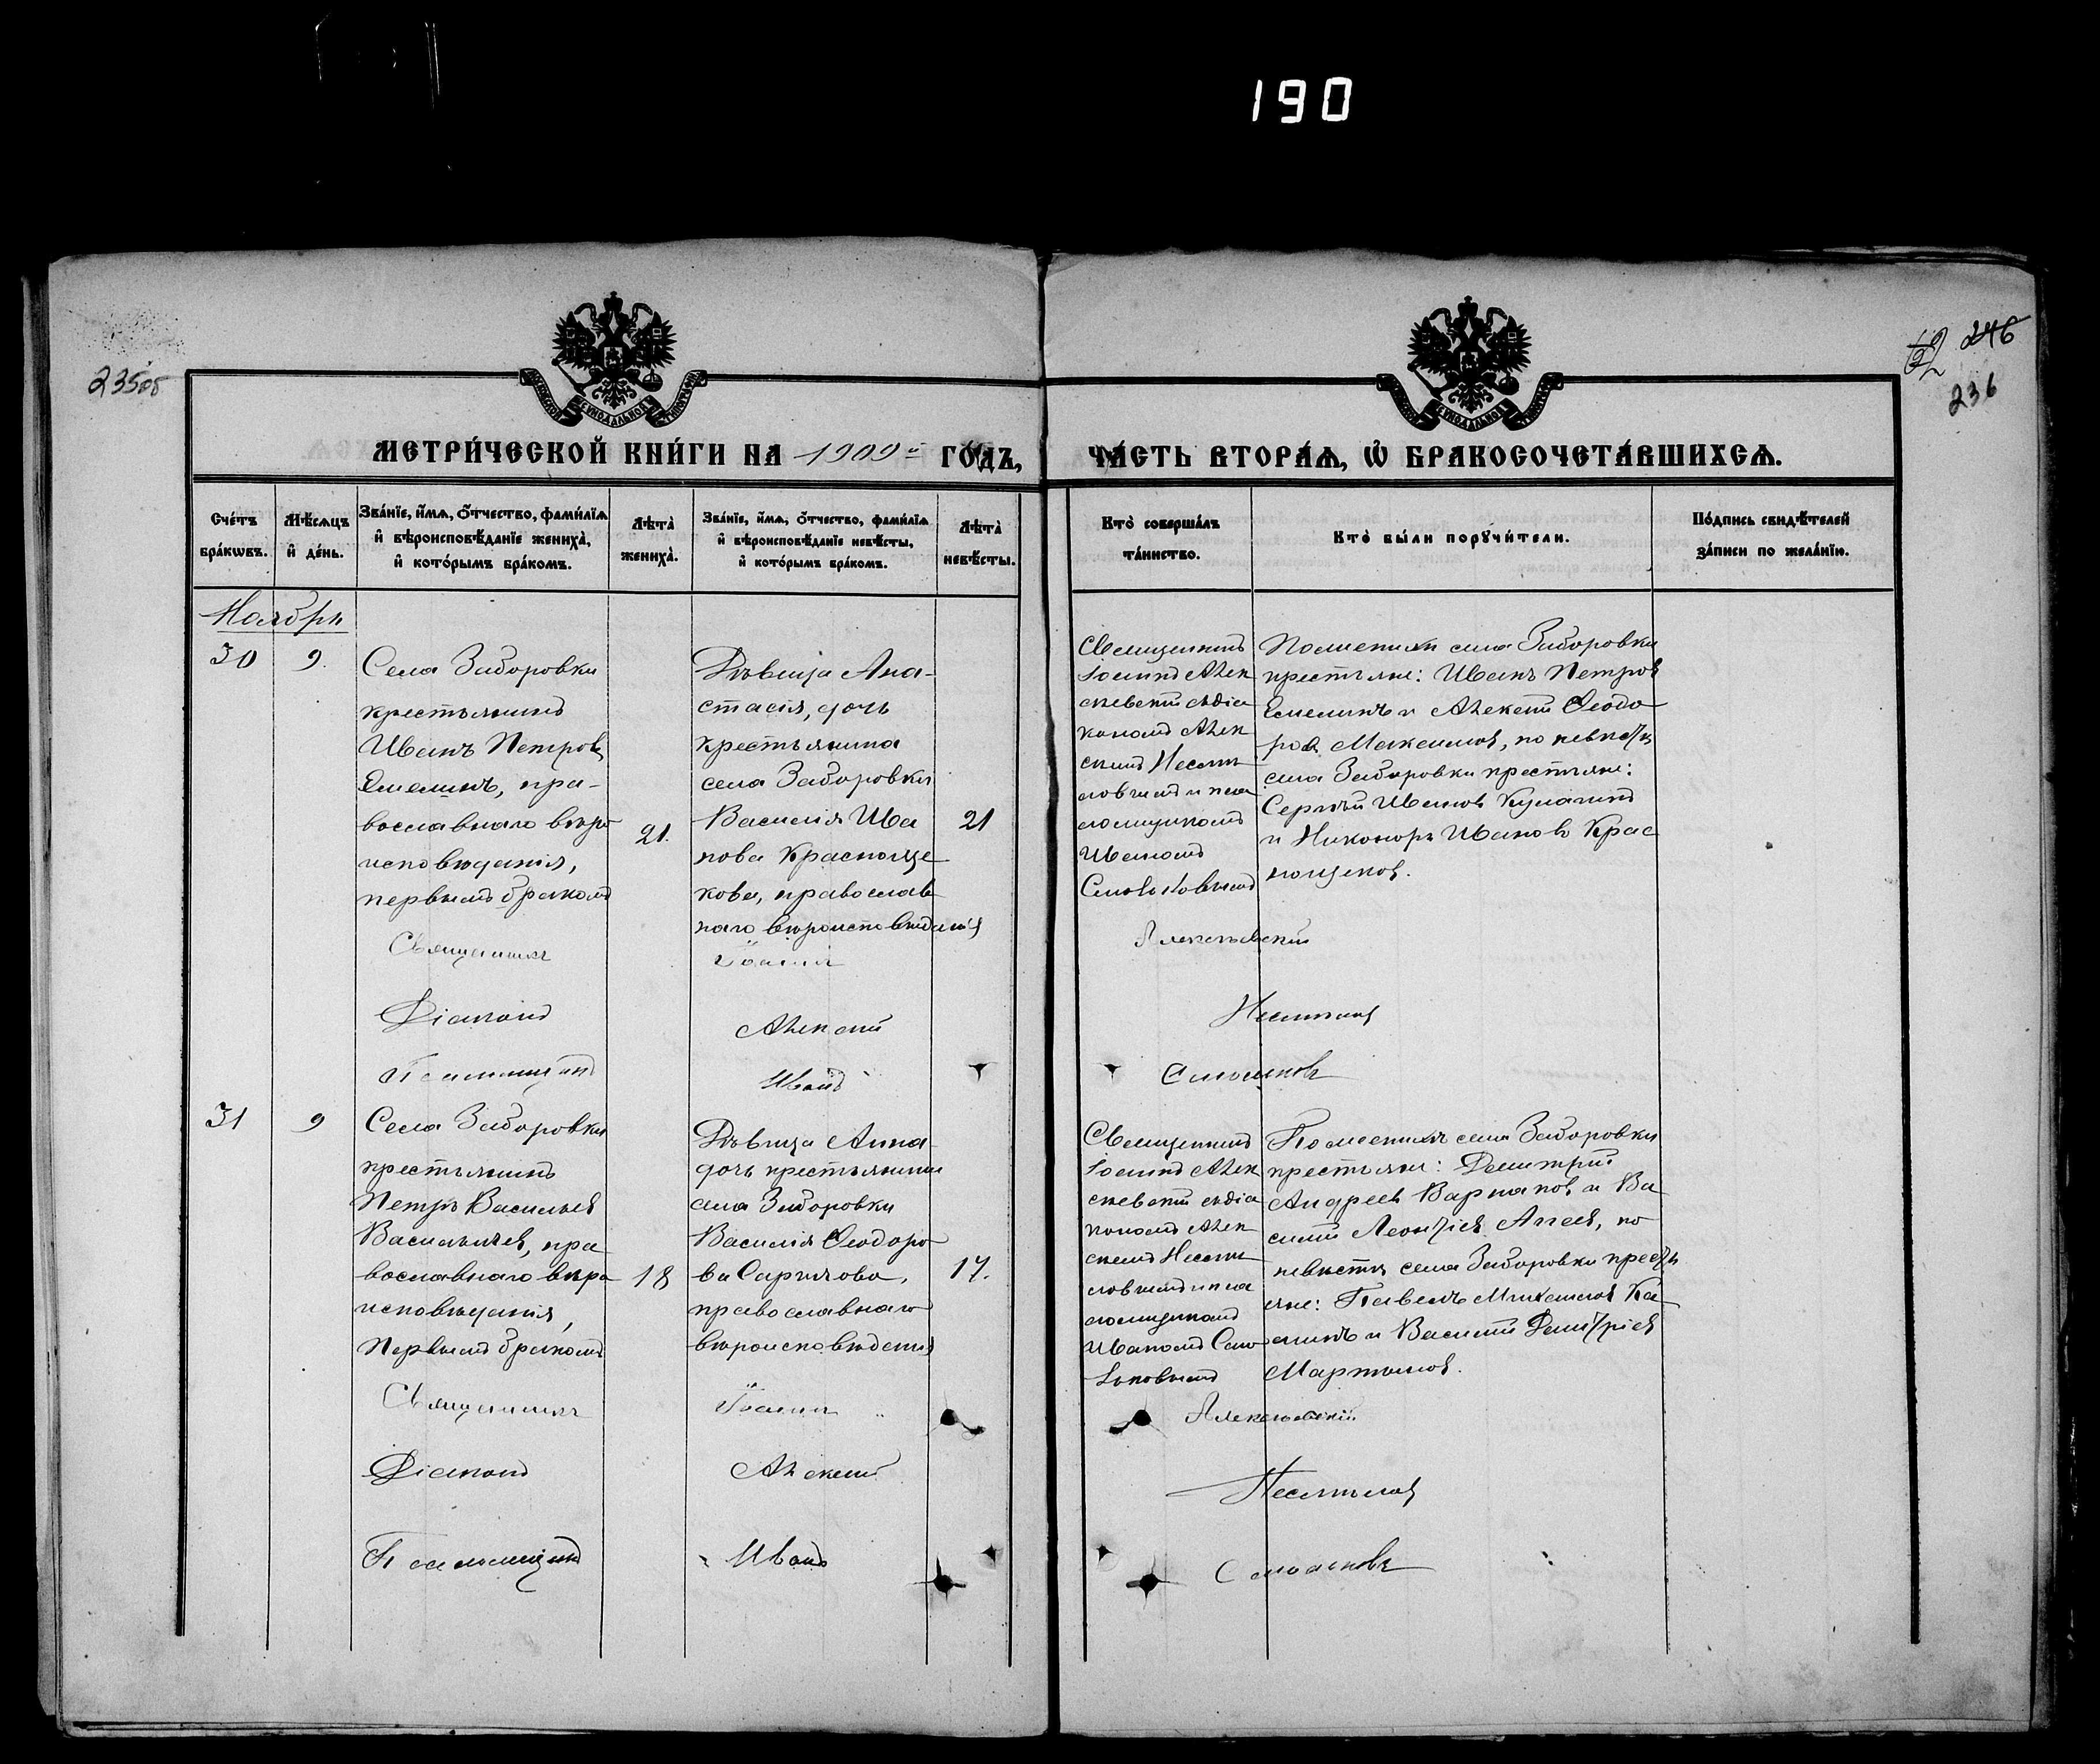 190
235об
246
236
МЕТРИ́ЧЕСКОЙ КНИ́ГИ НА 1909й ГО́ДЪ,
ЧА́СТЬ ВТОРА́Ѧ, Ѡ҆ БРАКОСОЧЕТА́ВШИХСѦ.
Сче́тъ бра́кѡвъ.
Мѣ́сѧцъ и҆ де́нь.
Зва́нїе, и҆́мѧ, ѻ҆́тчество, фами́лїѧ
и҆ вѣроисповѣ́данїе жениха̀,
и҆ кото́рымъ бра́комъ.
Лѣта̀ жениха̀.
Зва́нїе, и҆́мѧ, ѻ҆́тчество, фами́лїѧ
и҆ вѣроисповѣ́данїе невѣ́сты,
и҆ кото́рымъ бра́комъ.
Лѣта̀ невѣ́сты.
Кто̀ соверша́лъ
та́инство.
Кто̀ бы́ли порꙋчи́тели.
По́дпись свидѣ́телей
за́писи по жела́нїю.
Ноябрь
30
9.
Села Заборовки
крестьянинъ
Иванъ Петровъ
Емелинъ, пра-
вославнаго вѣро
исповѣданія,
первымъ бракомъ
21.
Дѣвица Ана-
стасія, дочь
крестьянина
села Заборовки
Василія Ива
нова Краснще
кова, православ
наго вѣроисповѣданія
21
Священникъ
Іоаннъ Алек
сѣевскій съ діа
кономъ Алек
сѣемъ Несмѣ
ловымъ и пса
ломщикомъ
Иваномъ
Смольковымъ
По женихѣ села Заборовки
крестьяне: Иванъ Петровъ
Емелинъ и Алексѣй Ѳеодо
ровъ Максимовъ, по невѣстѣ
села Заборовки крестьяне:
Сергѣй Ивановъ Кулагинъ
и Никоноръ Ивановъ Крас
нощековъ.
Священникъ Іоаннъ Алексѣевскій
Діаконъ Алексѣй Несмѣловъ
Псаломщикъ Иванъ Смольковъ
31
9
Села Заборовки
крестьянинъ
Петръ Васильевъ
Васильевъ, пра
вославнаго вѣро
исповѣданія,
Первымъ бракомъ
18
Дѣвица Анна
дочь крестьянина
села Заборовки
Василія Ѳеодоро
ва
православнаго
вѣроисповѣданія
17.
Священникъ
Іоаннъ Алек
сѣевскій съ діа
кономъ Алек
сѣемъ Несмѣ
ловымъ и пса
ломщикомъ
Иваномъ Смо
льковымъ
По женихѣ села Заборовки
крестьяне: Димитрій
Андреевъ Варлаковъ и Ва
силій Леонтіевъ Агеевъ, по
невѣстѣ села Заборовки кресть
яне: Павелъ Михайловъ Ка
линъ и Василій Димитріевъ
Мартыновъ.
Священникъ Іоаннъ Алексѣевскій
Діаконъ Алексѣй Несмѣловъ
Псаломщикъ Иванъ Смольковъ